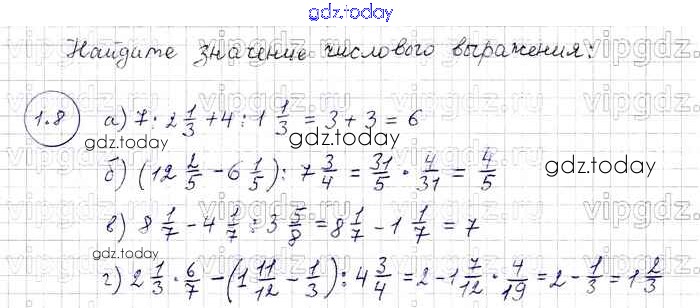 gdz.today
Найдите значение числового выражения:
1.8 а) 7 : 2 1/3 + 4 : 1 1/3 = 3 + 3 = 6
gdz.today
gdz.today
б) (12 2/5 - 6 1/5) : 7 3/4 = 31/5 · 4/31 = 4/5
в) 8 1/7 - 4 1/7 : 3 5/8 = 8 1/7 - 1 1/7 = 7
gdz.today
gdz.today
г) 2 1/3 · 6/7 - (1 11/12 - 1/3) : 4 3/4 = 2 - 1 7/12 · 4/19 = 2 - 1/3 = 1 2/3